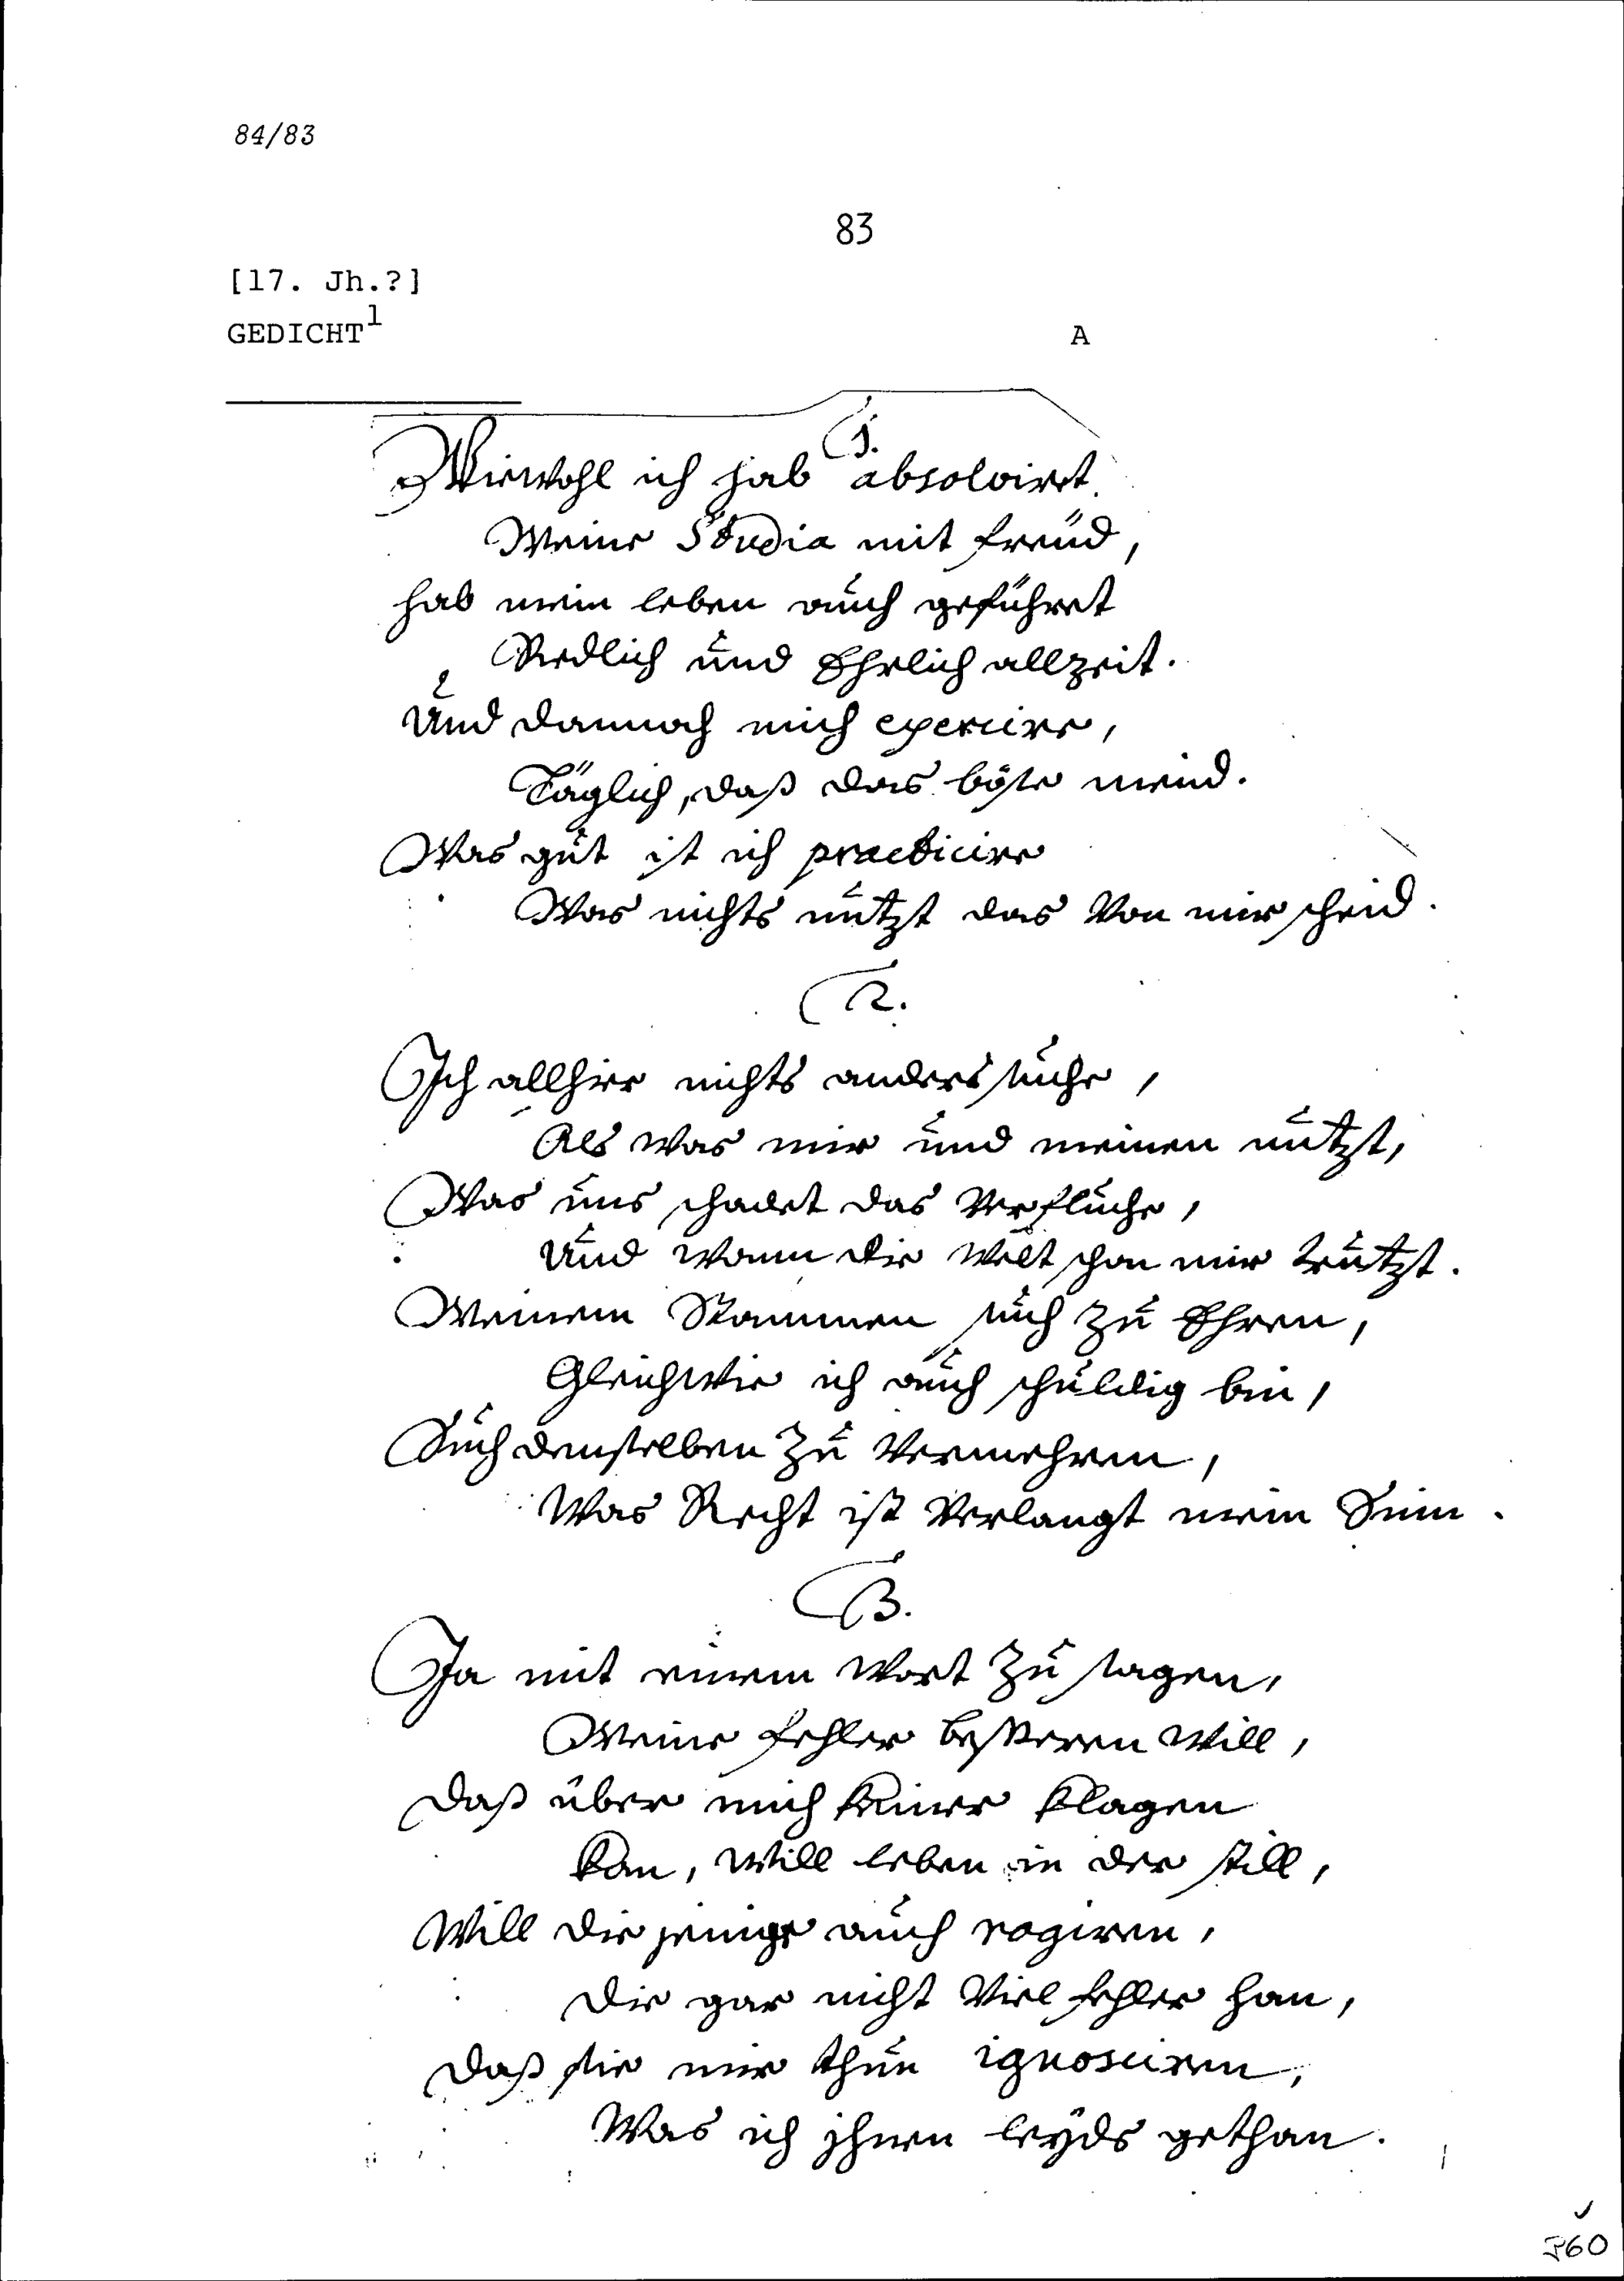 84/83
83
[17. Jh.?]
GEDICHT1
A
1.
Wiewohl ich hab absolviret
Meine Studia mit freüd,
hab mein leben auch geführet
Redlich und Ehrlich allzeit.
Und dannoch mich exercire,
Täglich, daß das böse meid.
Was gut ist ich practicire
Was nichts nutzt das Von mir scheid.
2.
Ich allhier nichts anders suche,
Als was mir und meinen nutzt,
Was uns schadet das Verfluche,
Und wann die Welt schon mir trutzt.
Meinem Stammen such zu Ehren,
Gleichwie ich auch schuldig bin,
Such denselben zu Vermehren,
Was Recht ist Verlangt mein Sinn.
3.
Ja mit einem Wort zu sagen,
Meine fehler besseren Will,
Daß über mich keiner klagen
kan, Will leben in der still,
Will die jenige auch rogiren,
Die gar nicht Viel fehler han,
Daß sie mir thun ignosciren,
Was ich ihnen leyds gethan.
360